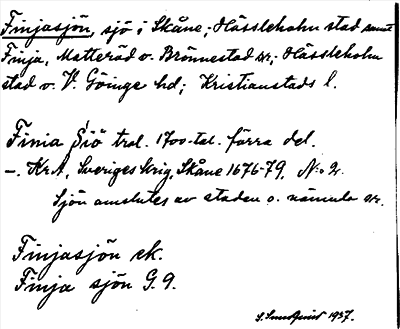 Finjasjön, sjö i Skåne; Hässleholm stad samt
Finja, Matteröd o. Brönnestad sr; Hässleholm
stad o. V. Göinge hd; Kristianstads l.
Finia Siö trol. 1700-tal. förra del.
–. KrA, Sveriges krig, Skåne 1676-79, N:o 2.
Sjön omslutes av staden o. nämnda sr.
Finjasjön ek.
Finja sjön G. 9.
S. Sundquist 1937.